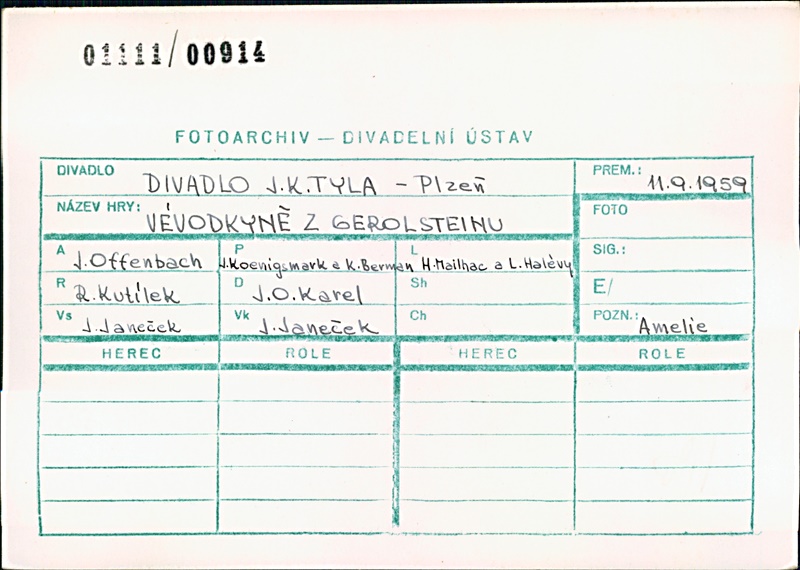 01111/00914
FOTOARCHIV — DIVADELNÍ ÚSTAV
DIVADLO DIVADLO J.K.TYLA – Plzeň PREM.: 11.9.1959
NÁZEV HRY: VÉVODKYNĚ Z GEROLSTEINU FOTO
A J.Offenbach P J.Koenigsmark a K.Berman L H.Mailhac a L.Halévy SIG.:
R R.Kutílek D J.O.Karel Sh E/
Vs J.Janeček Vk J.Janeček Ch POZN.: Amelie
HEREC ROLE HEREC ROLE